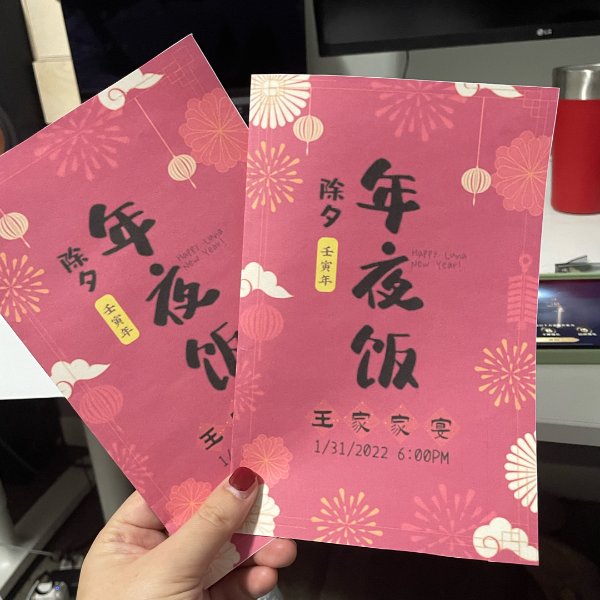 除夕
年夜饭
壬寅年
HAPPY Luna
New Year!
王家家宴
1/31/2022 6:00PM
除夕
年夜饭
壬寅年
HAPPY Luna
New Year!
王
1/
LG